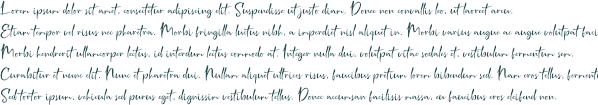 Lorem ipsum dolor sit amet, consectetur adipiscing elit. Suspendisse ut justo diam. Donec non convallis leo, ut laoreet arcu.
Etiam tempor vel risus nec pharetra. Morbi fringilla luctus nibh, a imperdiet nisl aliquet in. Morbi varius augue ac augue volutpat faci
Morbi hendrerit ullamcorper lectus, id interdum lectus commodo at. Integer nulla dui, volutpat vitae sodales et, vestibulum fermentum sem.
Curabitur et nunc elit. Nunc et pharetra dui. Nullam aliquet ultrices risus, faucibus pretium lorem bibendum sed. Nam eros tellus, fermenti
Sed tortor ipsum, vehicula sed purus eget, dignissim vestibulum tellus. Donec accumsan facilisis massa, eu faucibus eros eleifend non.